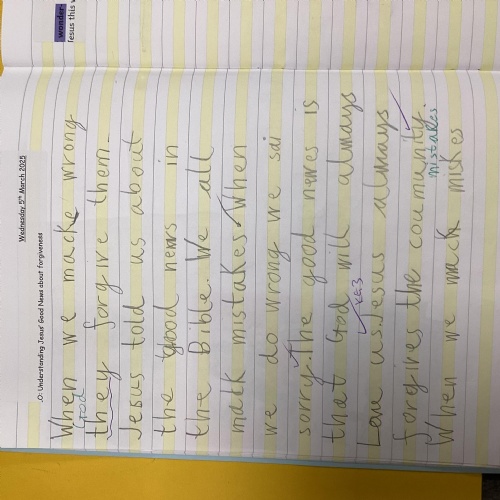 wonder
Jesus this w
Wednesday 5th March 2025
.O: Understanding Jesus' Good News about forgiveness
When we macke wrong
God
they forgive them.
Jesus told us about
the good news in
the Bible. We all
mack mistakes. When
we do wrong we sai
sorry. The good newes is
that God will always
KS3
Love us. Jesus always
forgives the coumunity.
mistakes
When we mack miskes